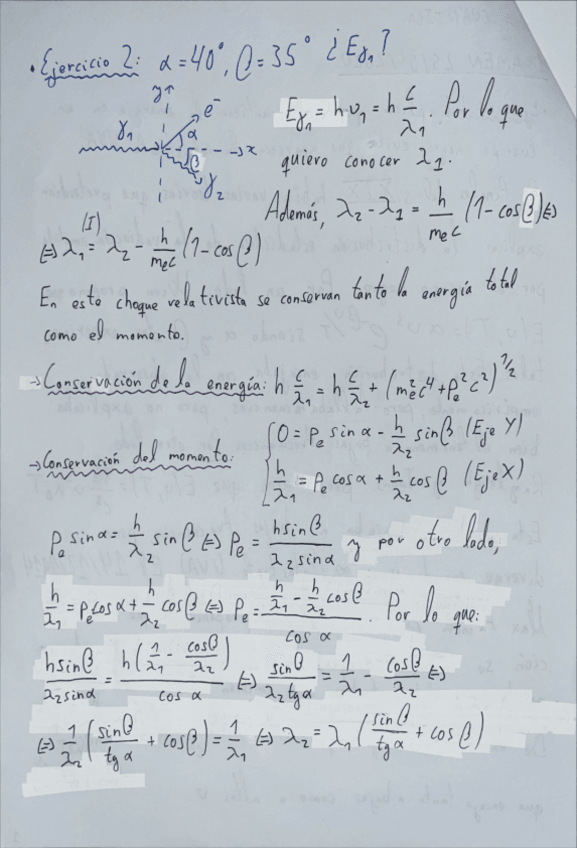 · Ejercicio 2: α = 40°, β = 35° ¿Eγ₁?
y
e⁻
γ₁
α
β
x
γ₂
Eγ₁ = hν₁ = h c/λ₁. Por lo que
quiero conocer λ₁.
Además, λ₂ - λ₁ = h/(mₑc) (1 - cosβ) ⇔
⇔ λ₁ =^(I) λ₂ - h/(mₑc) (1 - cos β)
En este choque relativista se conservan tanto la energía total
como el momento.
→ Conservación de la energía: h c/λ₁ = h c/λ₂ + (mₑ²c⁴ + pₑ²c²)^(1/2)
→ Conservación del momento: { 0 = pₑ sin α - h/λ₂ sin β (Eje Y)
h/λ₁ = pₑ cos α + h/λ₂ cos β (Eje X)
pₑ sin α = h/λ₂ sin β ⇔ pₑ = (h sin β)/(λ₂ sin α) y por otro lado,
h/λ₁ = pₑ cos α + h/λ₂ cos β ⇔ pₑ = (h/λ₁ - h/λ₂ cos β)/(cos α). Por lo que:
(h sin β)/(λ₂ sin α) = h(1/λ₁ - cosβ/λ₂)/(cos α) ⇔ sinβ/(λ₂ tg α) = 1/λ₁ - cosβ/λ₂ ⇔
⇔ 1/λ₂ (sin β/tg α + cos β) = 1/λ₁ ⇔ λ₂ = λ₁ (sin β/tg α + cos β)